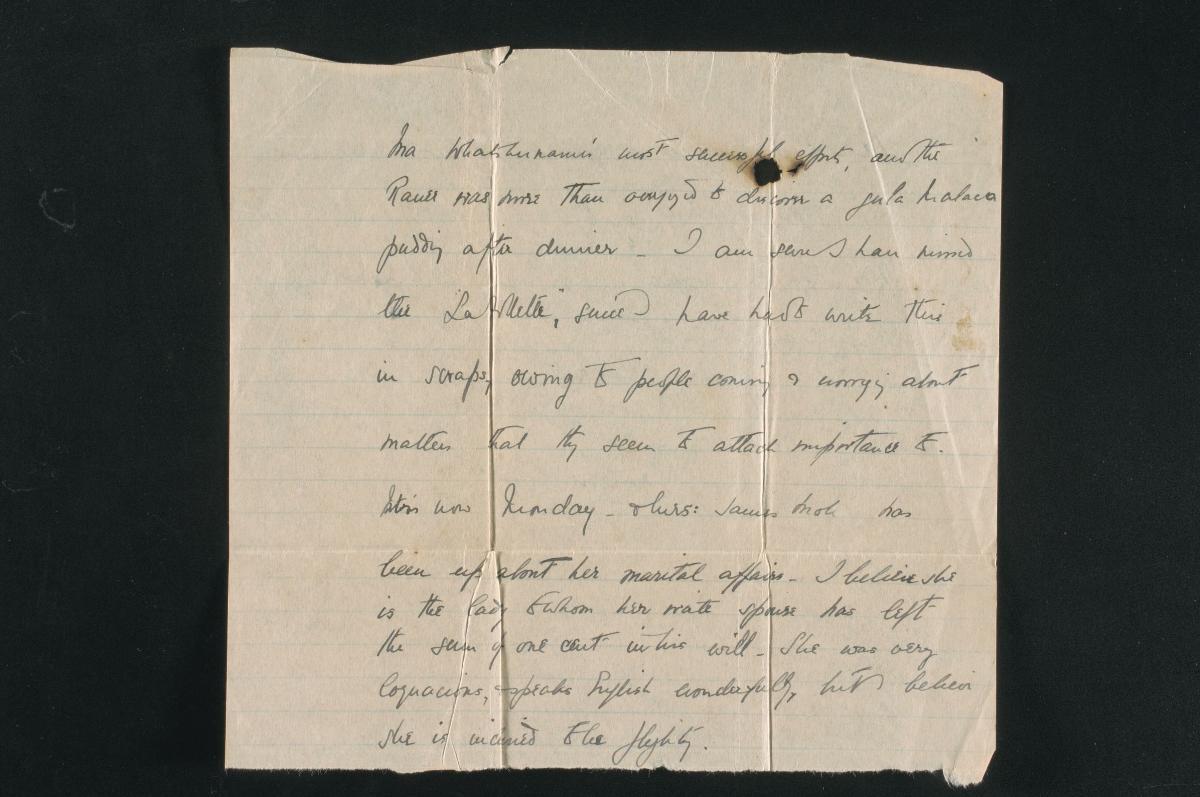 Ma Whatshername's most successful efforts, and the
Ranee was more than overjoyed to discover a gula Malacca
pudding after dinner - I am sure I have missed
the "La Alette", since I have had to write this
in scraps, owing to people coming & worrying about
matters that they seem to attach importance to.
It is now Monday - & Mrs: James Mok has
been up about her marital affairs - I believe she
is the lady to whom her irate spouse has left
the sum of one cent in his will - She was very
loquacious, & speaks English wonderfully, but I believe
she is inclined to be flighty.